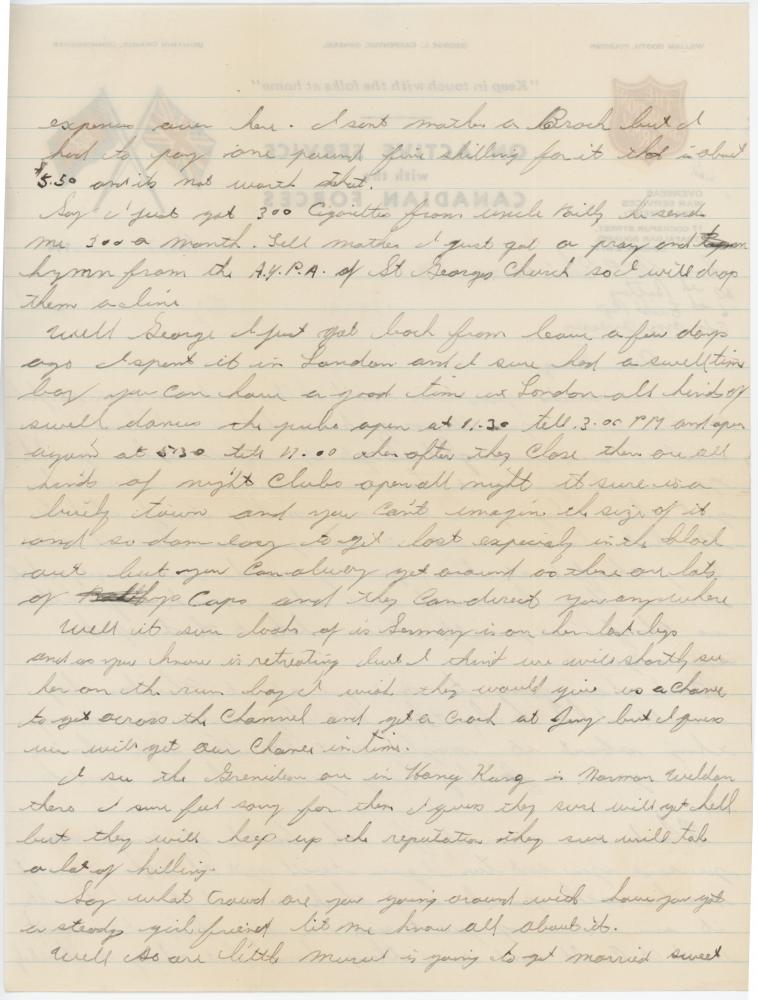 expensive over here. I sent mother a Broch but I
had to pay one pound five shilling for it that is about
$5.50 and its not worth that.
Say I just got 300 Cigarettes from uncle Billy he sends
me 300 a month. Tell mother I just got a pray and
hymn from the A.Y.P.A. of St Georges Church so I will drop
them a line
Well George I just got back from leave a few days
ago I spent it in London and I sure had a swell time
boy you can have a good time in London all kinds of
swell dances the pubs open at 11.30 till 3.00 PM and open
again at 5:30 till 11.00 then after they close there are all
kinds of night Clubs open all night it sure is a
lively town and you can't imagine the size of it
and so dam easy to get lost especialy in the black
out but you can alway get around as there are lots
of Cops and they can direct you anywhere
Well it sure looks of is Germany is on her last legs
and as you know is retreating but I think we will shortly see
her on the run boy I wish they would give us a chance
to get across the Channel and get a Crack at Jerry but I guess
we will get our Chance in time.
I see the Grenideers are in Hong Kong is Norman Weldon
there I sure feel sorry for them I guess they sure will get hell
but they will keep up the reputation they sure will take
a lot of killing.
Say what Crowd are you going around with have you got
a steady girl friend let me know all about it.
Well so are little is going to get married sweet